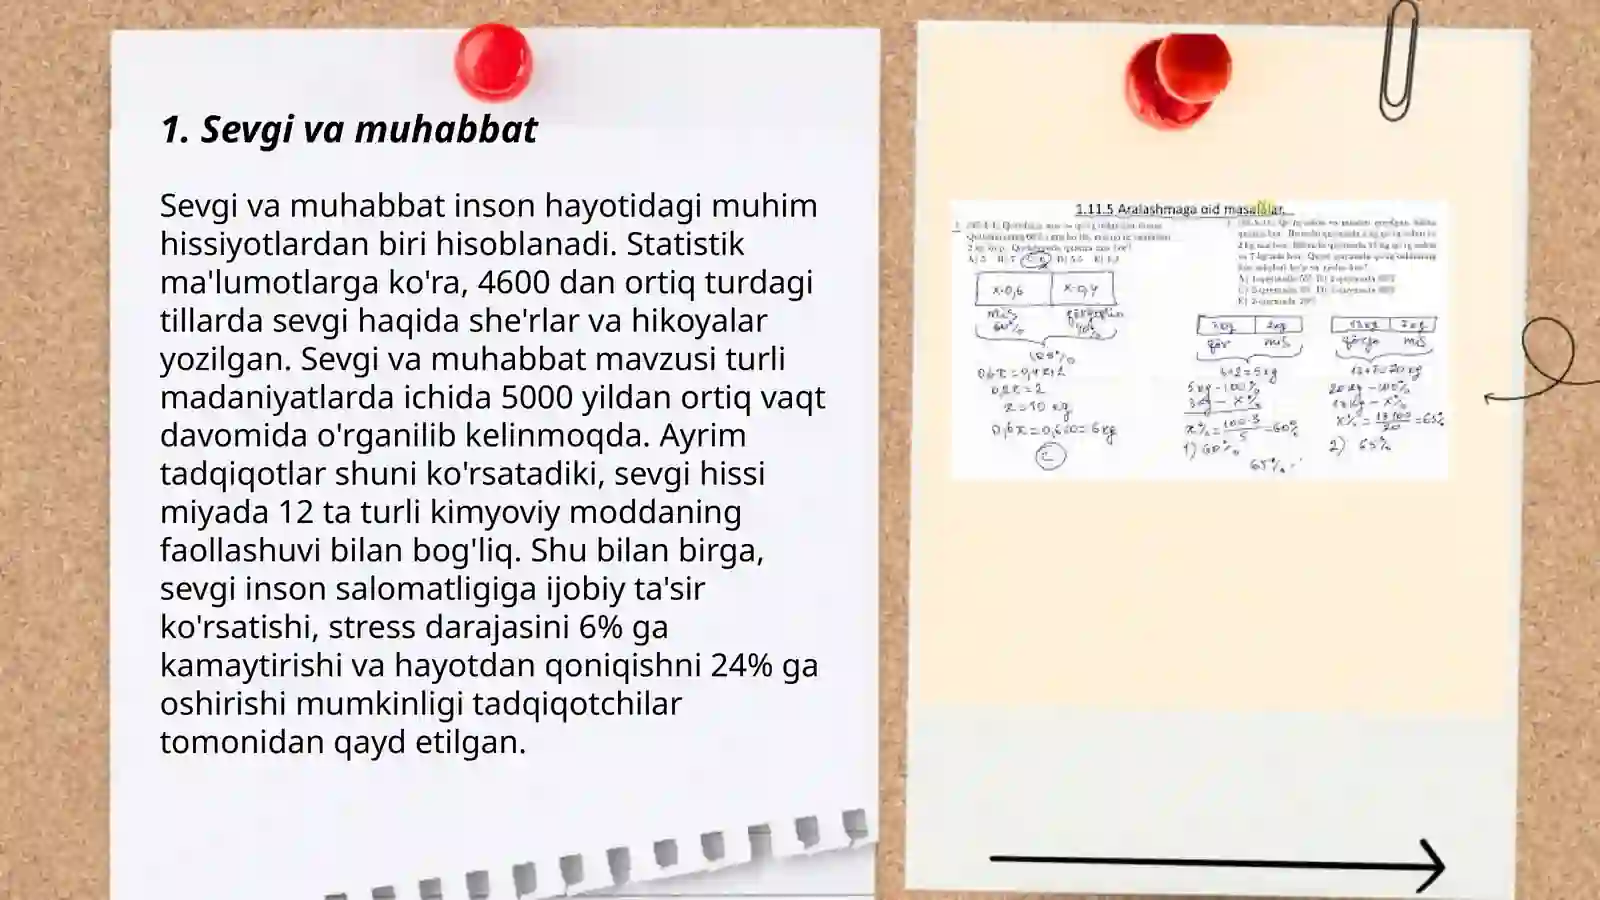 1. Sevgi va muhabbat
Sevgi va muhabbat inson hayotidagi muhim
hissiyotlardan biri hisoblanadi. Statistik
ma'lumotlarga ko'ra, 4600 dan ortiq turdagi
tillarda sevgi haqida she'rlar va hikoyalar
yozilgan. Sevgi va muhabbat mavzusi turli
madaniyatlarda ichida 5000 yildan ortiq vaqt
davomida o'rganilib kelinmoqda. Ayrim
tadqiqotlar shuni ko'rsatadiki, sevgi hissi
miyada 12 ta turli kimyoviy moddaning
faollashuvi bilan bog'liq. Shu bilan birga,
sevgi inson salomatligiga ijobiy ta'sir
ko'rsatishi, stress darajasini 6% ga
kamaytirishi va hayotdan qoniqishni 24% ga
oshirishi mumkinligi tadqiqotchilar
tomonidan qayd etilgan.
1.11.5 Aralashmaga oid masalalar.
x·0,6 x·0,4
mis
60%
100%
0,6x=0,4x+2
0,2x=2
x=10 kg
0,6x=0,6·10=6kg
C
3kg 2kg
mis
3+2=5kg
5kg-100%
3kg-x%
x%=100·3/5=60%
1) 60%
65%
13kg 7kg
mis
13+7=20kg
20kg-100%
13kg-x%
x%=13·100/20=65%
2) 65%